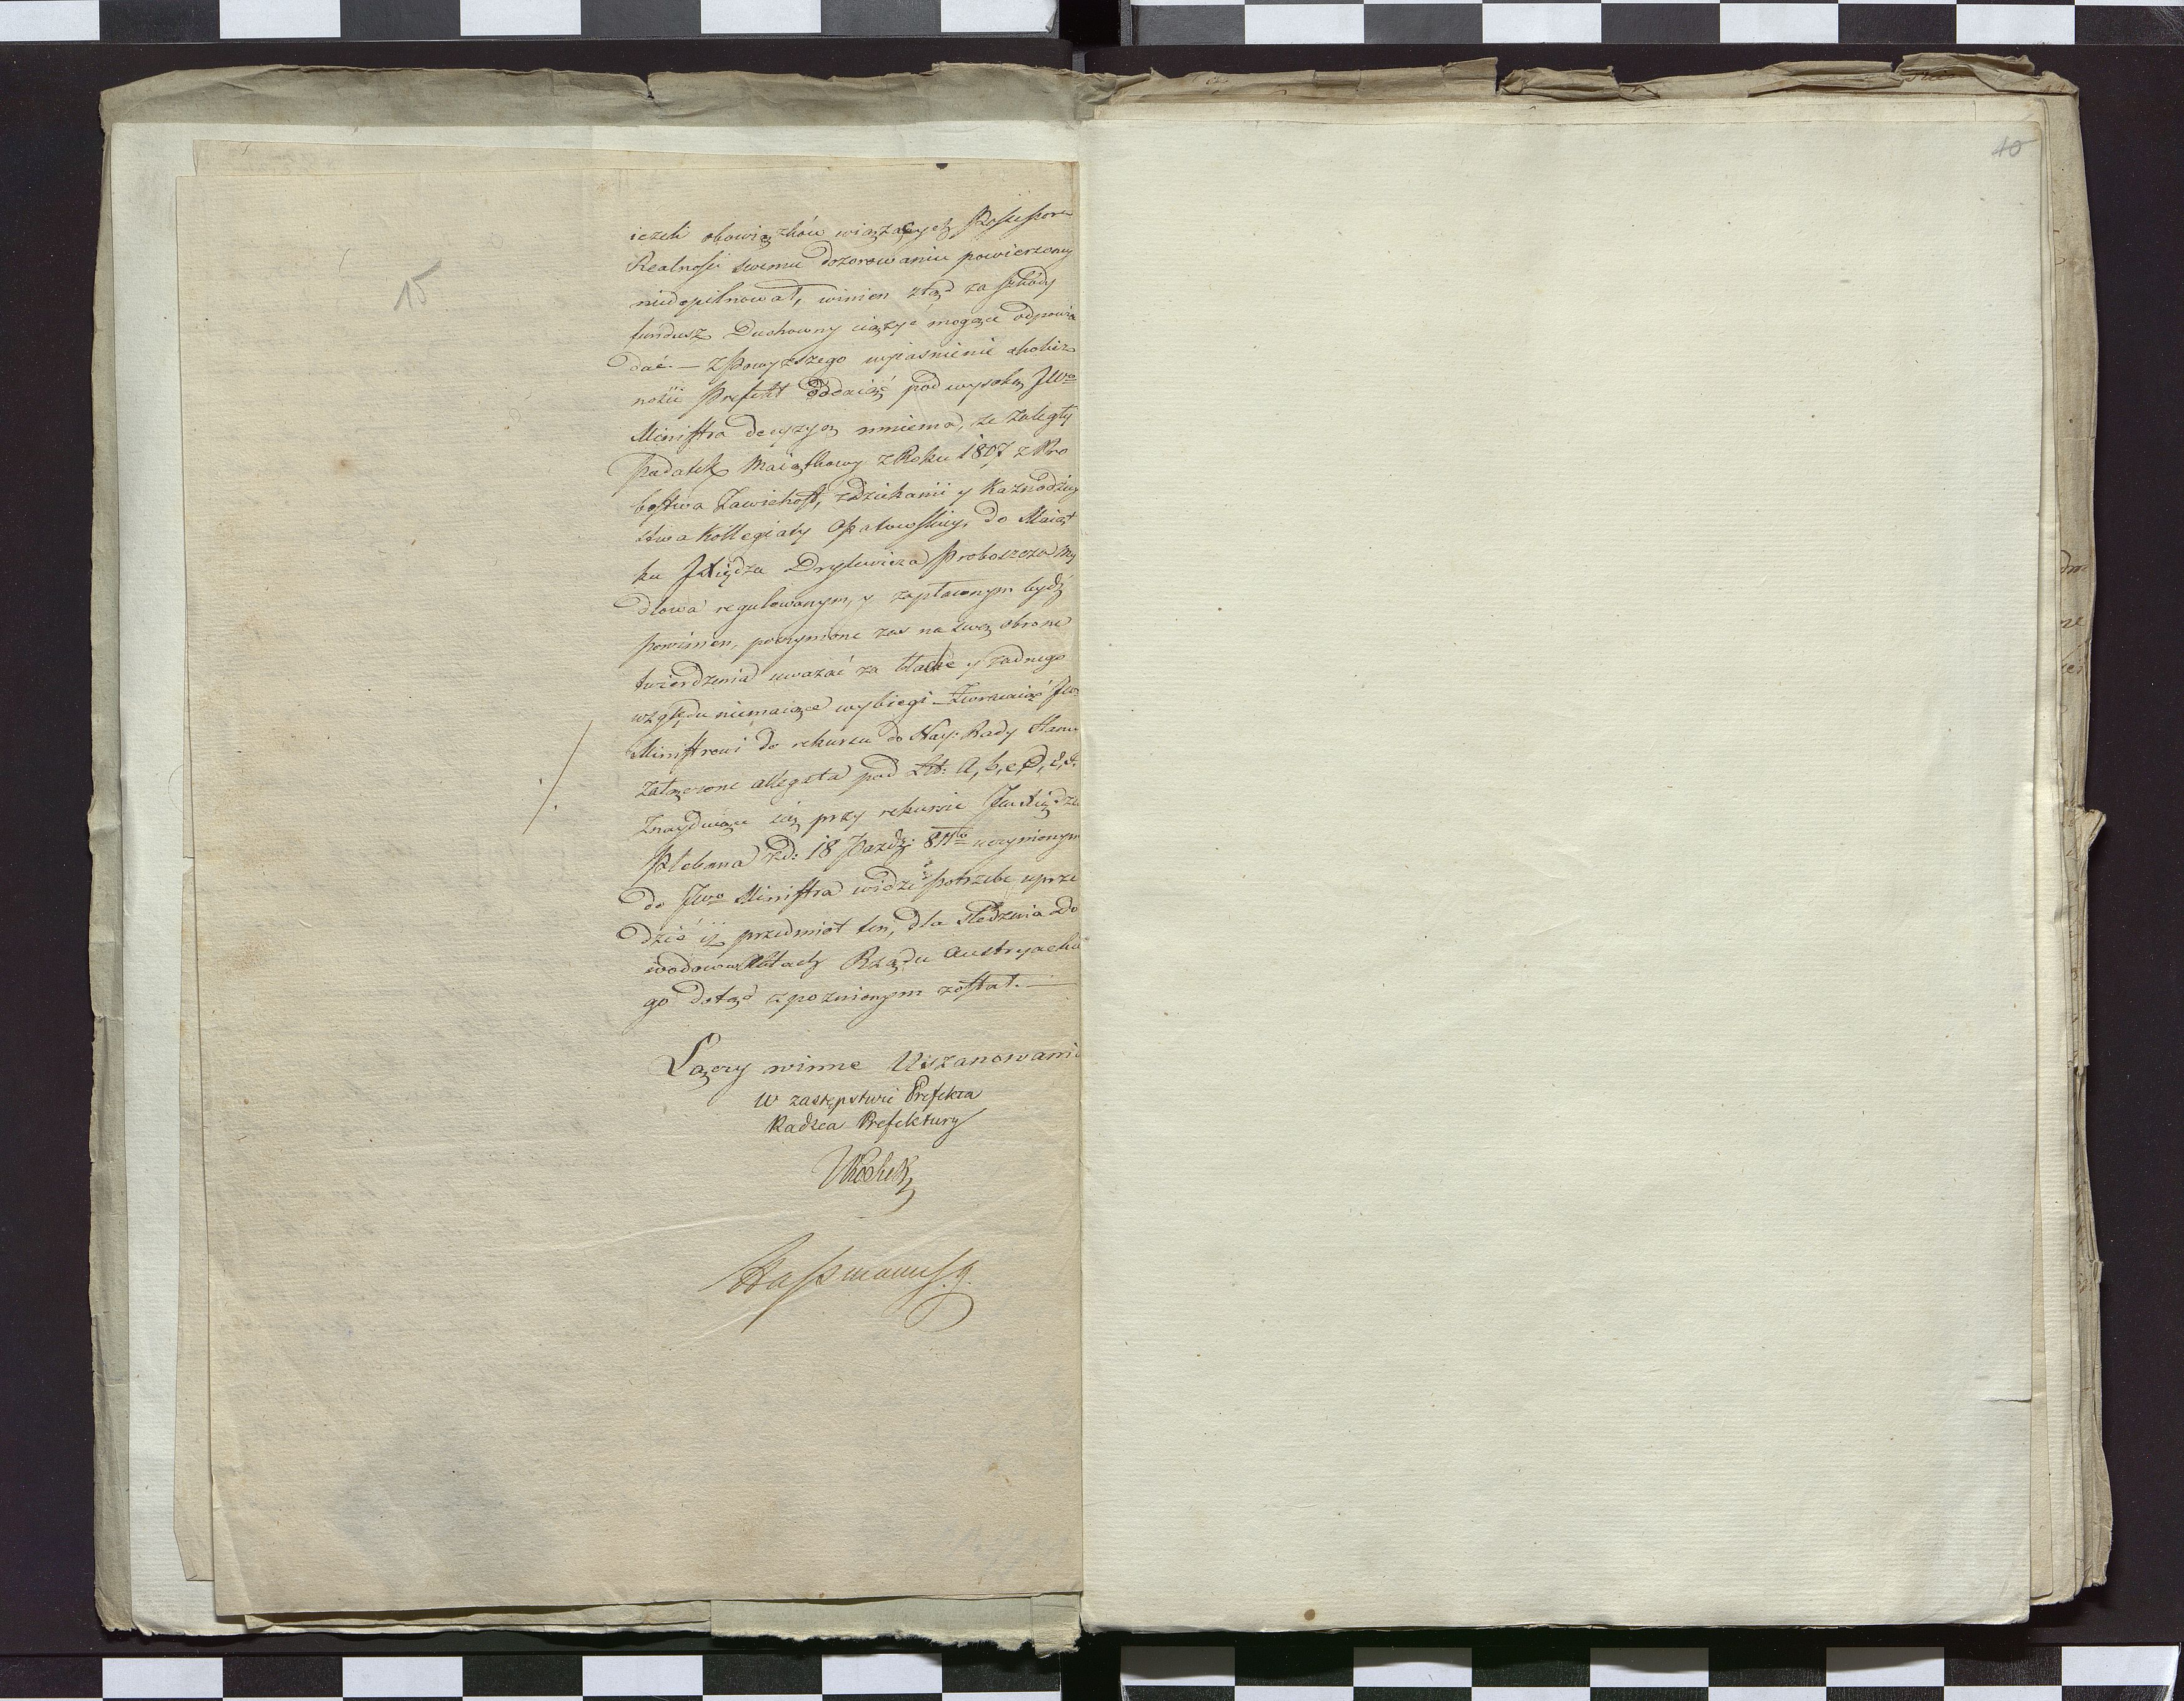 40
15
ieżeli obowiązków wiążących Possessora
Realności swemu dozorowaniu powierzoney
niedopilnował, winien ztąd za szkody
fundusz Duchowny ciążyć mogące odpowia
dać. — Z Powyższego wyiaśnienia okolicz
ności Prefekt oddaiąc pod wysoką JWo
Ministra decyzyą mniema, że zaległy
Podatek Maiątkowy z Roku 1807 z Pro
bostwa Zawichost, Dziekanii y Kaznodziey
stwa Kollegiaty Opatowskiey, do Maiąt
ku JXiędza Dryłewicza Proboszcza My
dłowa regulowanym, y zapłaconym bydź
powinien, poczynione zaś na swą obronę
twierdzenia uważać za błache y żadnego
względu niemaiące wybiegi — Zwracaiąc JWo
Ministrowi do rekursu do Nay: Rady Stanu
załączone allegata pod Lit: A, b, c, D, e, F.
Znayduiące się przy rekursie JW Xiędza
Plebana z d: 18 Paźdź: 811go uczynionym
do JWo Ministra widzi potrzebę uprze
dzić iż przedmiot ten, dla śledzenia Do
wodów w Aktach Rządu Austryackie
go dotąd opoznionym został. —
Łączy winne Uszanowanie
W zastępstwie Prefekta
Radzca Prefektury
Hassmann S. J.